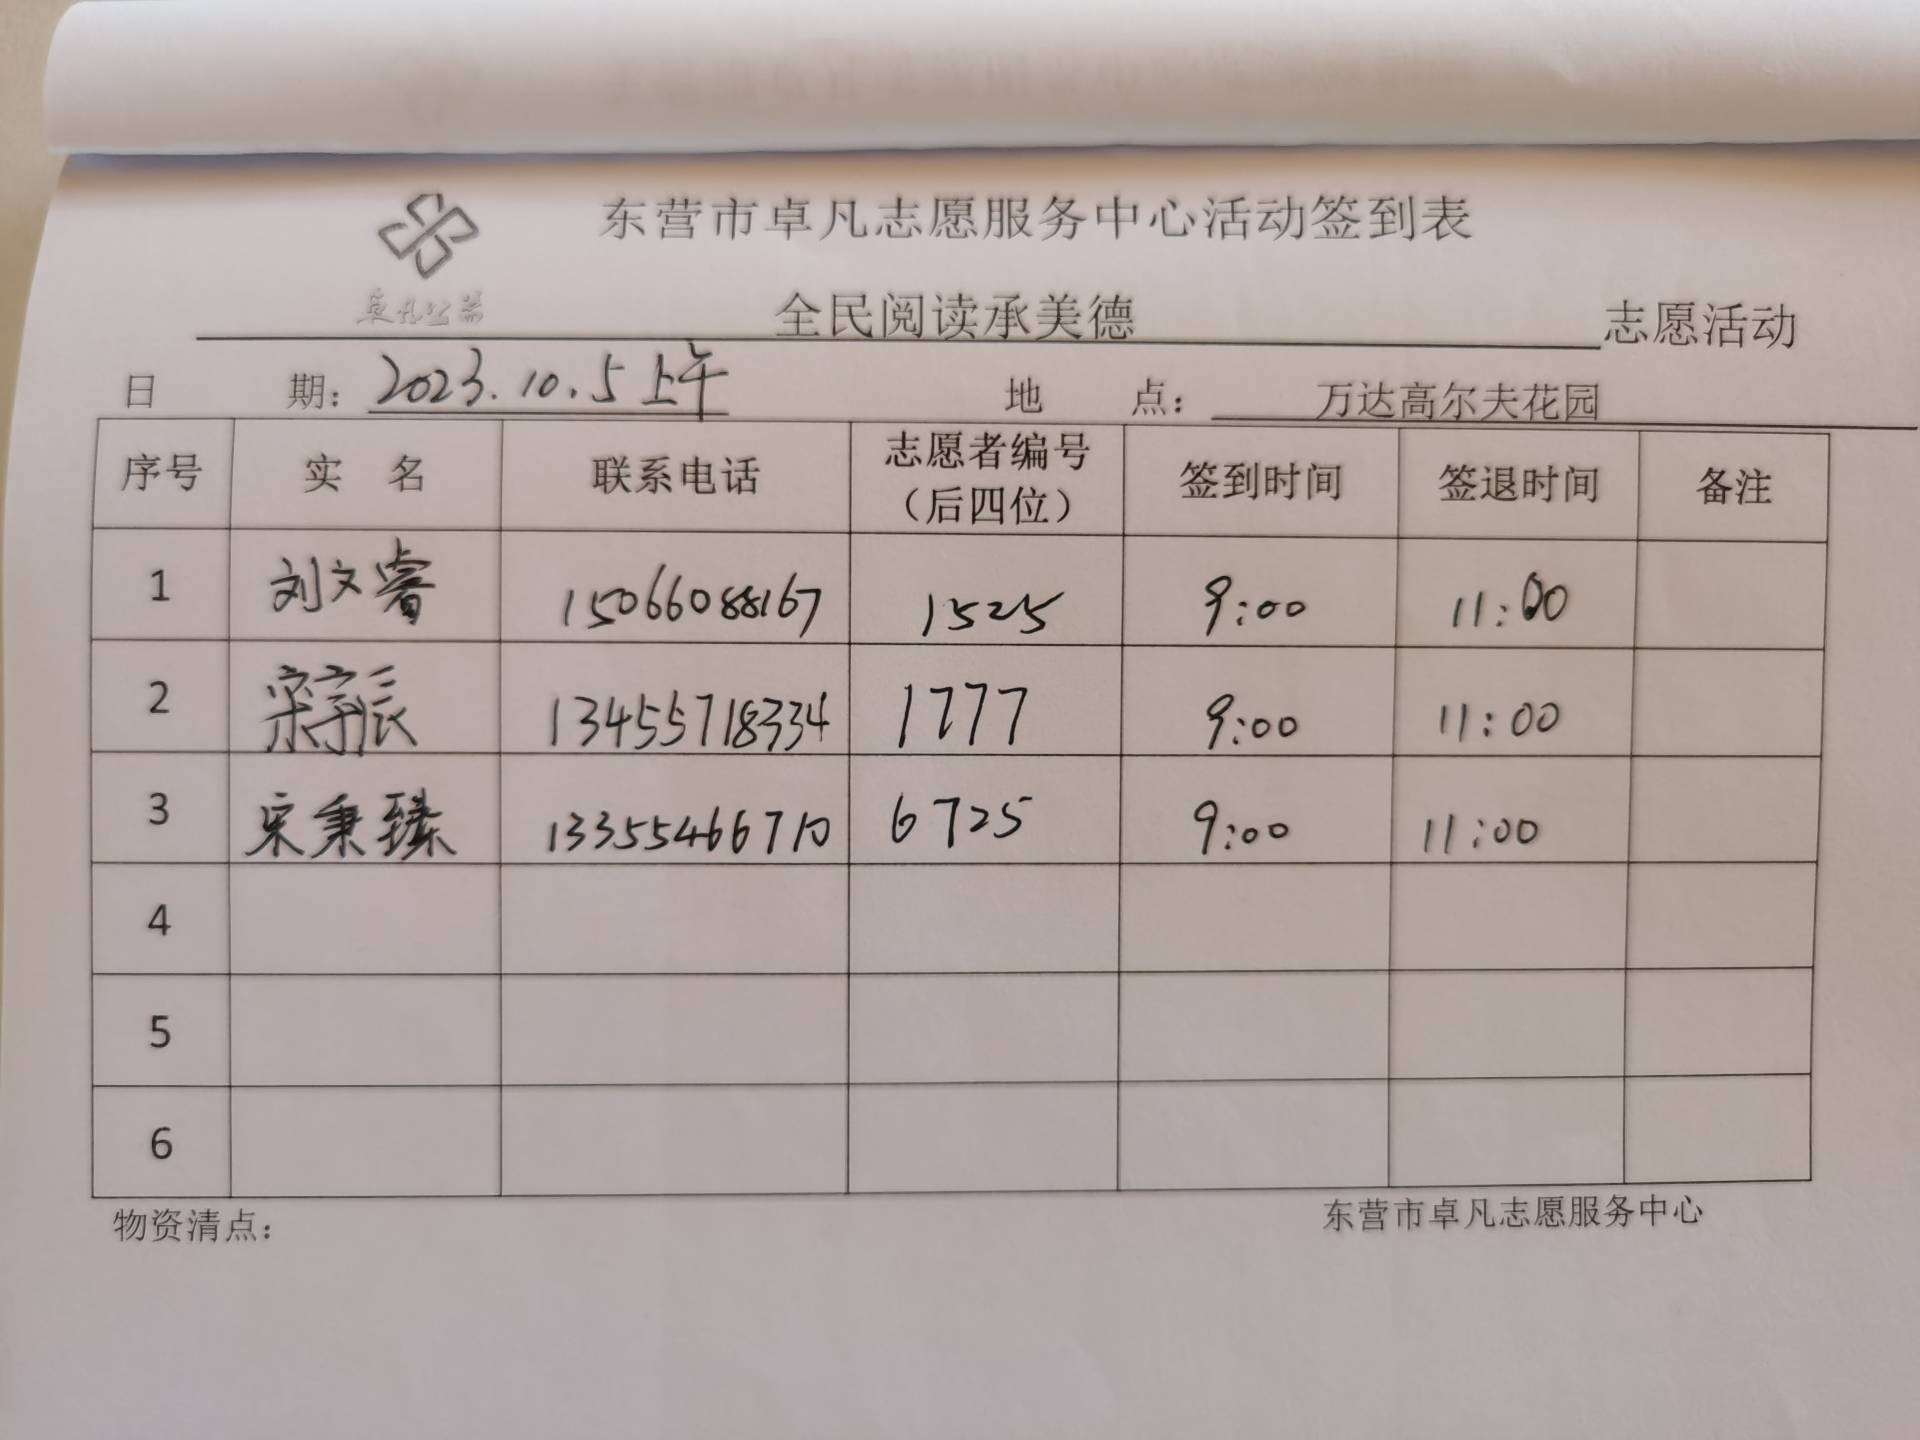 东营市卓凡志愿服务中心活动签到表
卓凡公益
全民阅读承美德 志愿活动
日 期：2023.10.5上午 地 点：万达高尔夫花园
序号 实 名 联系电话 志愿者编号（后四位） 签到时间 签退时间 备注
1 刘文睿 15066088167 1525 9:00 11:00
2 宋宇辰 13455718334 1777 9:00 11:00
3 宋秉臻 13355466710 6725 9:00 11:00
4
5
6
物资清点： 东营市卓凡志愿服务中心